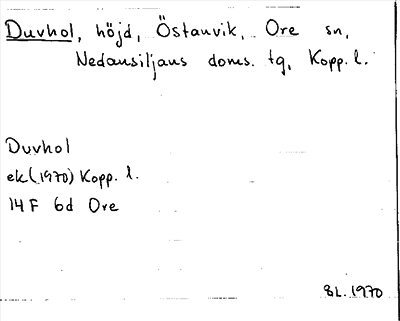 Duvhol, höjd, Östanvik, Ore sn,
Nedansiljans doms. tg, Kopp. l.
Duvhol
ek(1970) Kopp. l.
14 F 6d Ore
BL. 1970